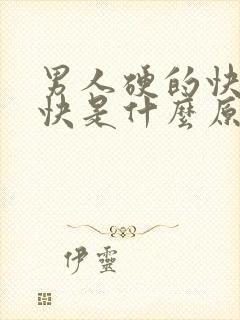 男人硬的快
快是什麼原
伊靈